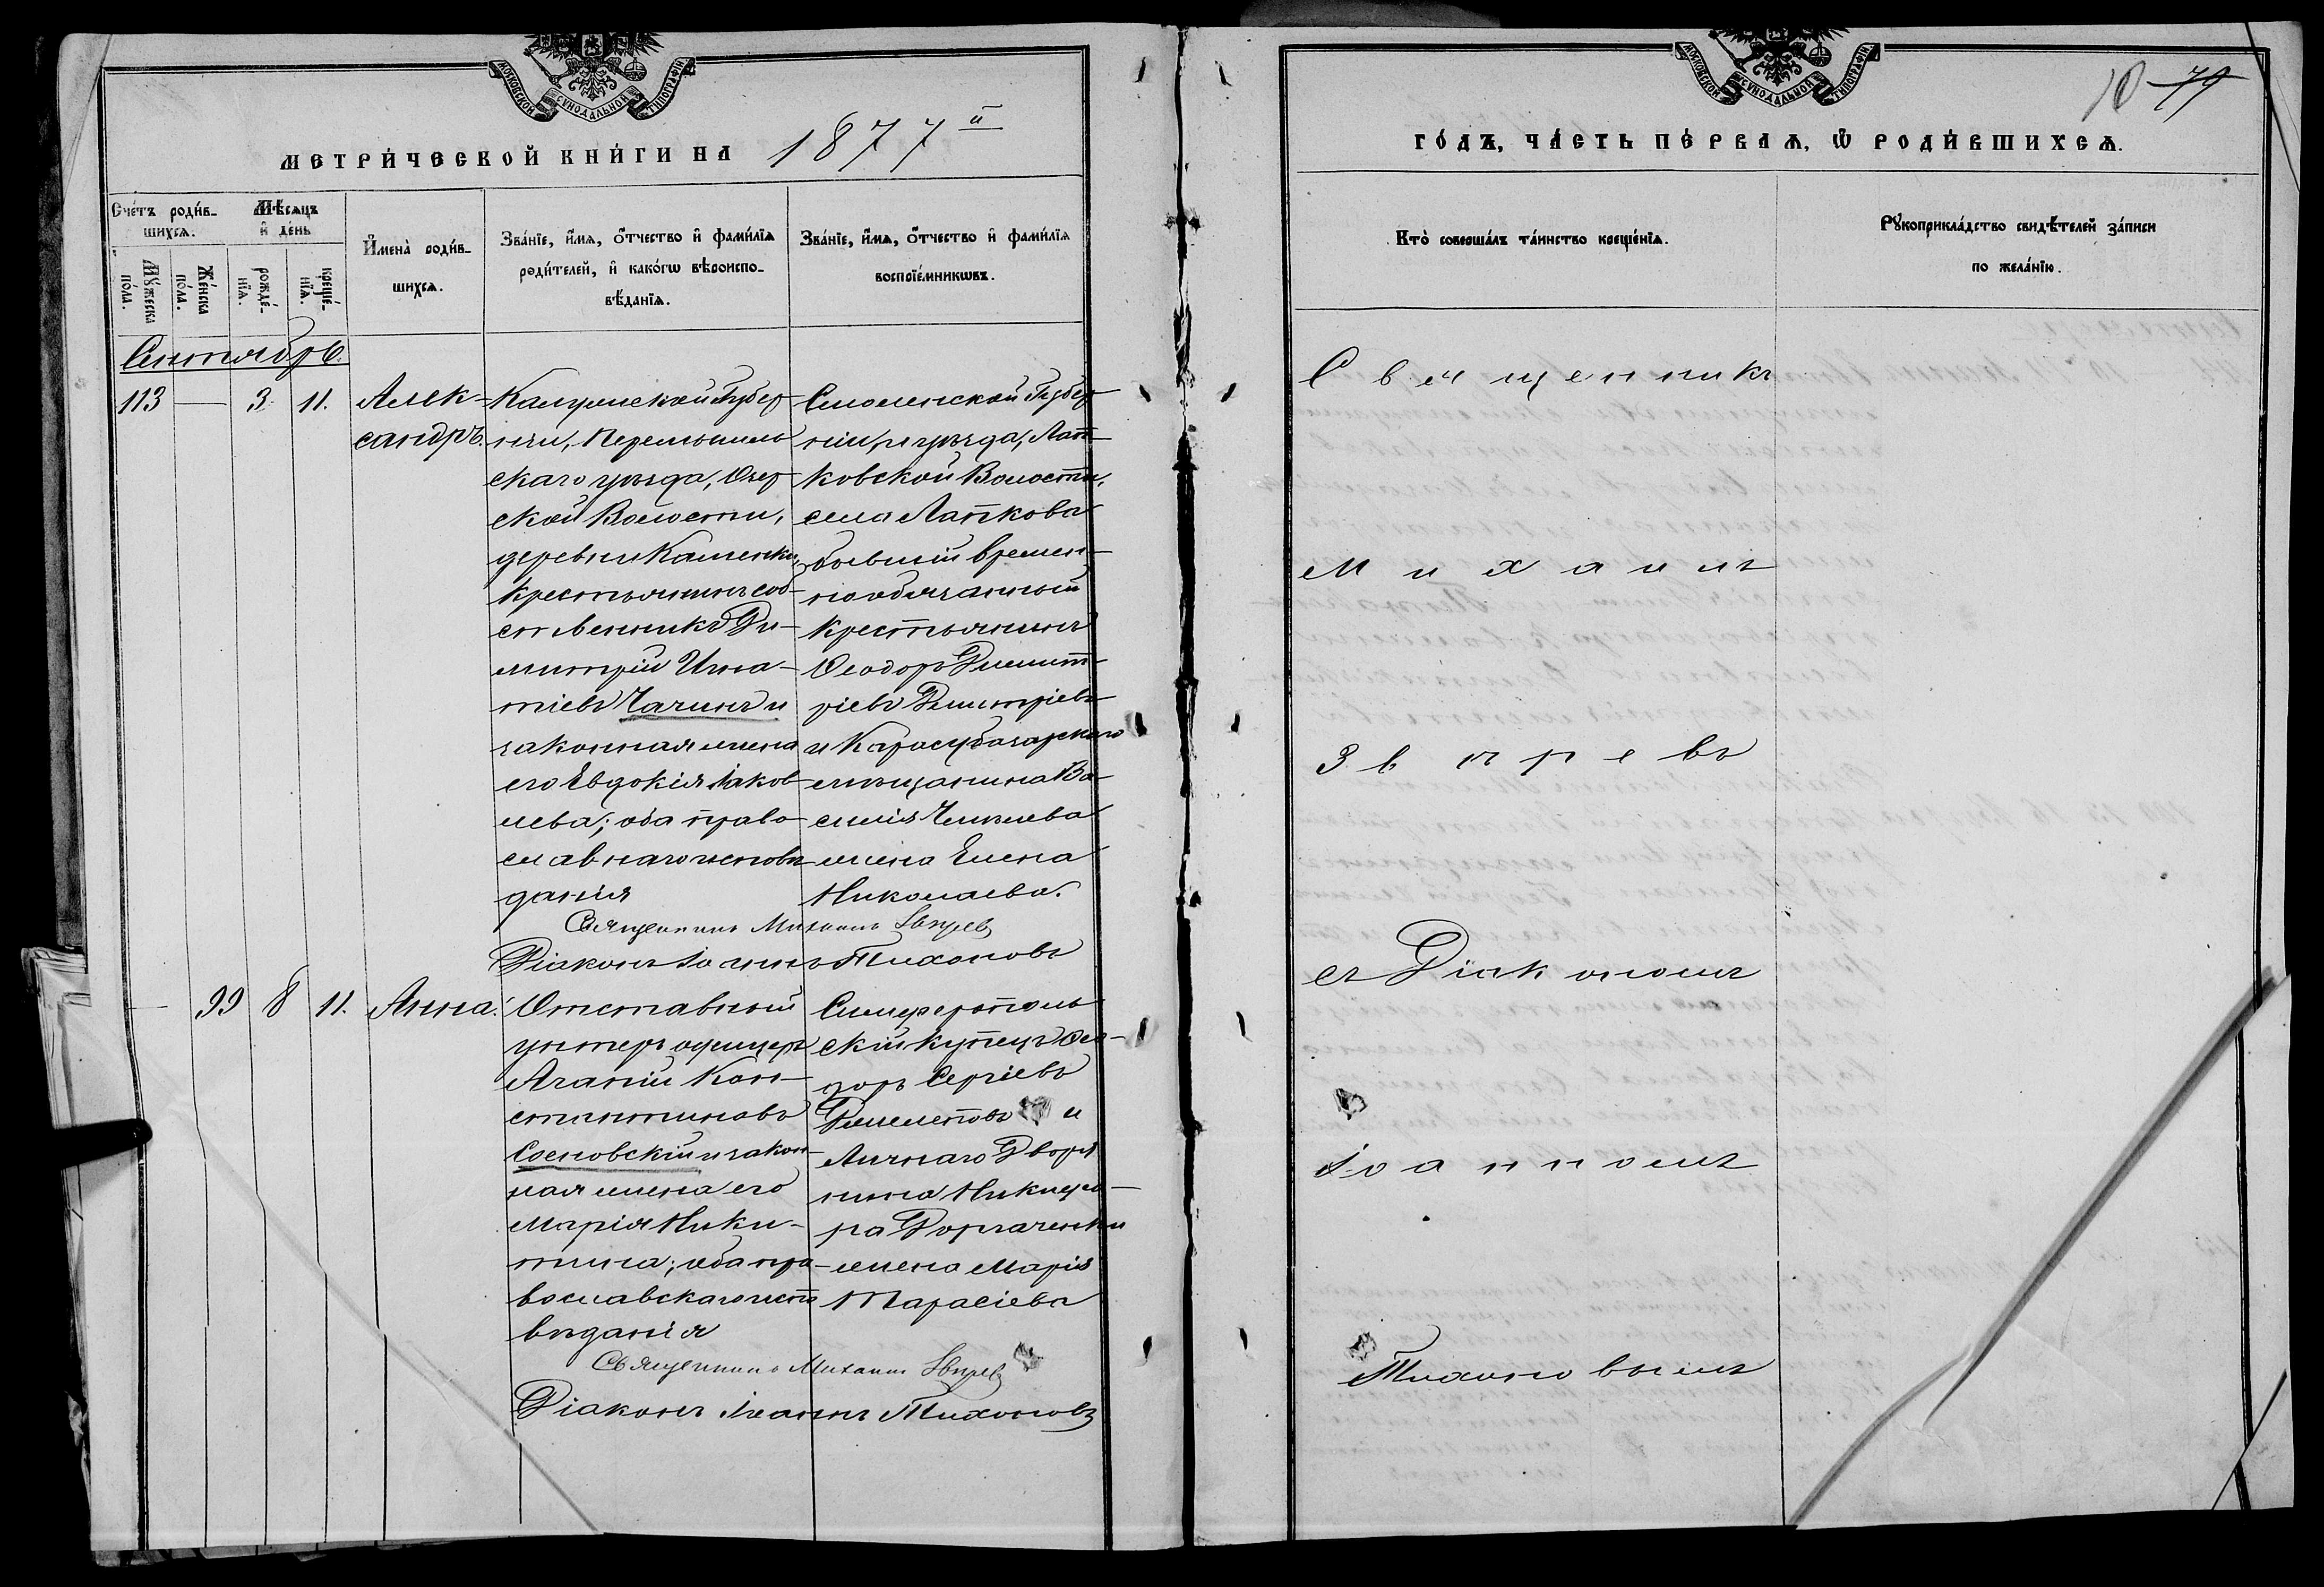 МОСКОВСКОЙ СѴНОДАЛЬНОЙ ТИПОГРАФІИ
МЕТРИ́ЧЕСКОЙ КНИ́ГИ НА 1877й
Сче́тъ роди́в-
шихсѧ.
Мѣ́сѧцъ
и҆ де́нь
Мꙋ́жеска
по́ла.
Же́нска
по́ла.
рожде́-
нїѧ.
креще́-
нїѧ.
И҆мена̀ роди́в-
шихсѧ.
Зва́нїе, и҆́мѧ, ѻ҆́тчество и҆ фами́лїѧ
роди́телей, и҆ како́гѡ вѣроиспо-
вѣ́данїѧ.
Зва́нїе, и҆́мѧ, ѻ҆́тчество и҆ фами́лїѧ
воспрїе́мникѡвъ.
Сентябрь.
113 — 3 11.
Алек-
сандръ.
Калужской Губер-
ніи, Перемышль-
скаго уѣзда, Озер-
ской Волости,
деревни Каменки,
крестьянинъ соб-
ственникъ Ди-
митрій Игна-
тіевъ Чачинъ и
законная жена
его Евдокія Іаков-
лева; оба право-
славнаго исповѣ-
данія
Смоленской Губер-
ніи, и уѣзда, Лап-
ковской Волости,
села Лапкова
бывшій времен-
нообязанный
крестьянинъ
Ѳеодоръ Димит-
ріевъ Димитріевъ
и Карасубазарскаго
мѣщанина Ва-
силія
жена Елена
Николаева.
Священникъ Михаилъ Звѣревъ
Діаконъ Іоаннъ Тихоновъ
— 99 8 11.
Анна.
Отставной
унтеръ офицеръ
Агапій Кон-
стантиновъ
Сосновскій и закон-
ная жена его
Марія Ники-
тина; оба пра-
вославскаго испо
вѣданія
Симферополь-
скій купецъ Ѳео-
доръ Сергіевъ
и
Личнаго Дворя
нина Никифо-
ра
жена Марія
Тарасіева
Священникъ Михаилъ Звѣревъ
Діаконъ Іоаннъ Тихоновъ
МОСКОВСКОЙ СѴНОДАЛЬНОЙ ТИПОГРАФІИ
10 79
ГО́ДЪ, ЧА́СТЬ ПЕ́РВАѦ, Ѽ РОДИ́ВШИХСѦ.
Кто̀ соверша́лъ та́инство креще́нїѧ.
Рꙋкоприкла́дство свидѣ́телей за́писи
по жела́нїю.
Священникъ
Михаилъ
Звѣревъ
съ Діакономъ
Іоанномъ
Тихоновымъ